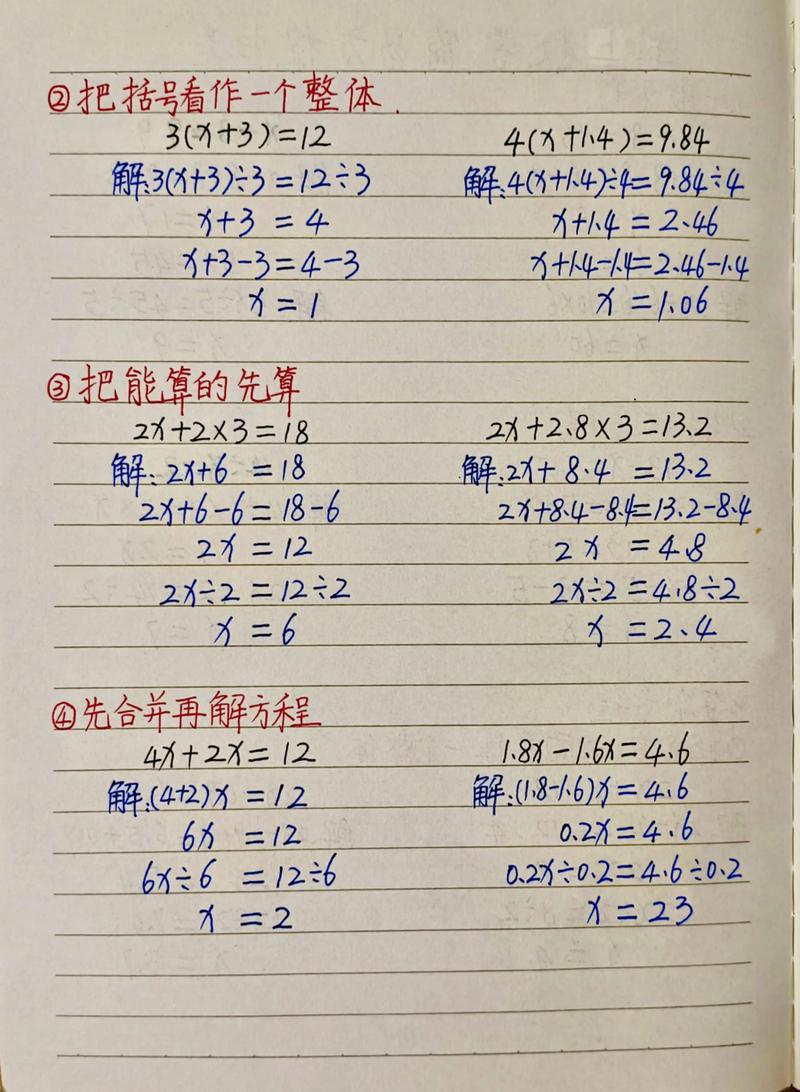 ②把括号看作一个整体.
3(x+3)=12
解:3(x+3)÷3=12÷3
x+3=4
x+3-3=4-3
x=1
4(x+1.4)=9.84
解:4(x+1.4)÷4=9.84÷4
x+1.4=2.46
x+1.4-1.4=2.46-1.4
x=1.06
③把能算的先算
2x+2×3=18
解:2x+6=18
2x+6-6=18-6
2x=12
2x÷2=12÷2
x=6
2x+2.8×3=13.2
解:2x+8.4=13.2
2x+8.4-8.4=13.2-8.4
2x=4.8
2x÷2=4.8÷2
x=2.4
④先合并再解方程
4x+2x=12
解:(4+2)x=12
6x=12
6x÷6=12÷6
x=2
1.8x-1.6x=4.6
解:(1.8-1.6)x=4.6
0.2x=4.6
0.2x÷0.2=4.6÷0.2
x=23